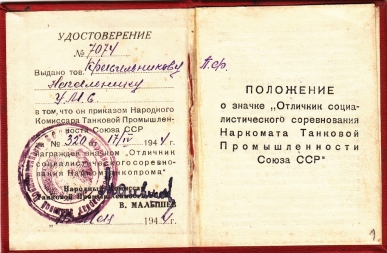 УДОСТОВЕРЕНИЕ
№ 7074
Выдано тов.
Начальнику
в том, что он приказом Народного
Комиссара Танковой Промышлен-
ности Союза ССР
№ 320 17/IV 1944 г.
награжден значком „Отличник
социалистического соревно-
вания Наркомтанкопрома"
Народный Комиссар
Танковой Промышленности
В. МАЛЫШЕВ
194 г.
ПОЛОЖЕНИЕ
о значке „Отличник социа-
листического соревнования
Наркомата Танковой
Промышленности
Союза ССР"